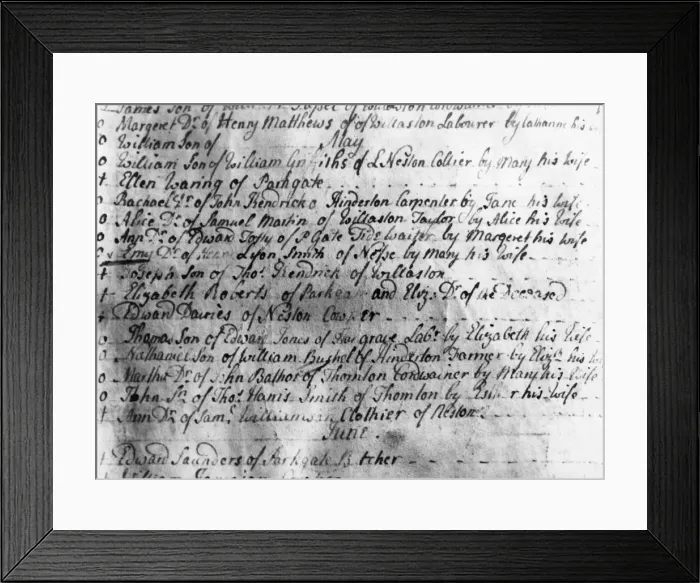 James Son of
o Margeret Dr. of Henry Matthews of Willaston Labourer by his
o William Son of May
o William Son of William Griffiths of L Neston Collier by Mary his Wife
+ Ellen Waring of Parkgate
o Rachael Dr. of John Kendrick o Hinderton Carpenter by Jane his Wife
o Alice Dr. of Samuel Martin of Willaston Taylor by Alice his Wife
o Ann Dr. of Edward of P Gate Tide waiter by Margeret his Wife
o Emy Dr. of Henry Lyon Smith of Nesse by Mary his Wife
+ Joseph Son of Thos. Kendrick of Willaston
+ Elizabeth Roberts of Parkgate and Eliz. Dr. of the Deceased
+ Edward Davies of Neston Cowper
o Thomas Son of Edward Jones of grave Labr. by Elizabeth his Wife
o Nathaniel Son of William Bushel of Hinderton Farmer by Elizth. his
o Martha Dr. of John of Thornton Cordwainer by Mary his Wife
o John Sn. of Thos. Hanis Smith of Thornton by Esther his Wife
+ Ann Dr. of Saml. Williamson Clothier of Neston
June
+ Edward Saunders of Parkgate Butcher